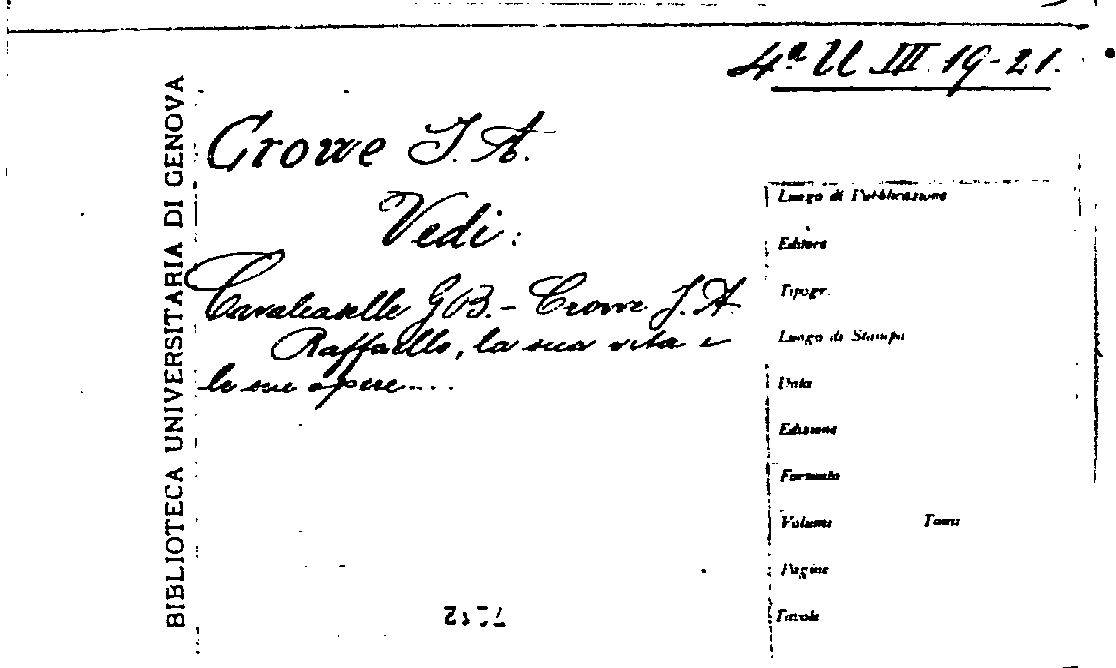 4ª U III. 19-21.
BIBLIOTECA UNIVERSITARIA DI GENOVA
Crowe J. A.
Vedi:
Cavalcaselle G B. - Crowe J. A.
Raffaello, la sua vita e
le sue opere....
Luogo di Pubblicazione
Editore
Tipogr.
Luogo di Stampa
Data
Edizione
Formato
Volumi Tomi
Pagine
Tavole